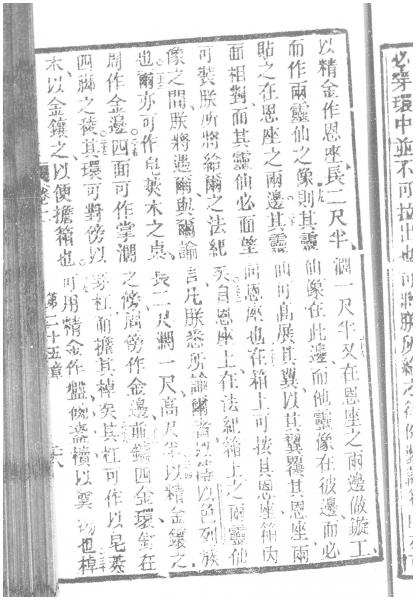 必穿環中並不可拉出也可將朕所給之
以精金作恩座長二尺半濶一尺半又在恩座之兩邊做鏇工
而作兩靈仙之像則其靈仙像在此邊而他靈像在彼邊而必
貼之在恩座之兩邊其靈仙可高展其翼以其翼覆其恩座兩
面相對而其靈仙必面望向恩座也在箱上可按其恩座箱內
可裝朕所將給爾之法紀矣自恩座上在法紀箱上之兩靈仙
像之間朕將遇爾與爾諭言凡朕悉所諭爾者以以色列族
也爾亦可作皂莢木之桌長二尺濶一尺高尺半以精金鑲之
周作金邊四面可作掌濶之傍周傍作金邊前鑄四金環釘在
四脚之稜其環可對傍以穿杠而擔其棹矣其杠可作以皂莢
木以金鑲之以便擔箱也可用精金作盤碗盞櫝以奠物也棹
卷二 第二十五章